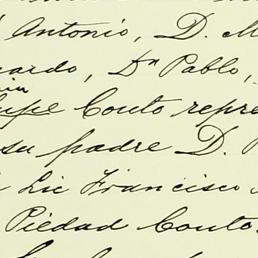 Antonio, D. M
cardo, Dn Pablo,
upe Couto repre
su padre D.
Lic Francisco
Piedad Couto